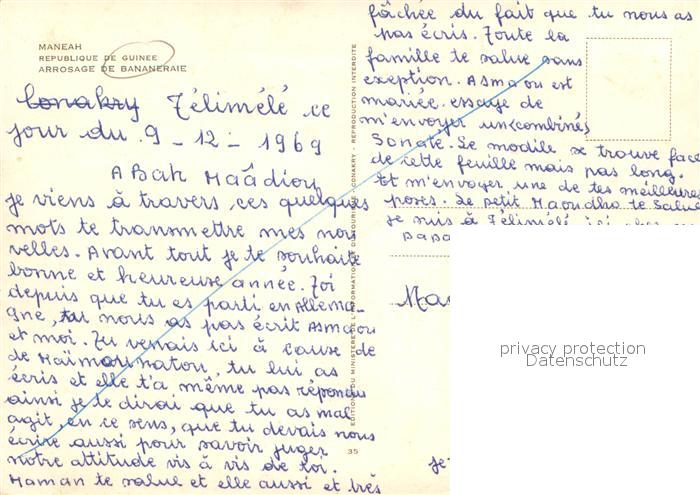 MANEAH
REPUBLIQUE DE GUINEE
ARROSAGE DE BANANERAIE
Conakry Télimélé ce
jour du 9-12-1969
A Bah Maâdiou
je viens à travers ces quelques
mots te transmettre mes nou
velles. Avant tout je te souhaite
bonne et heureuse année. Toi
depuis que tu es parti en Allema-
gne, tu nous as pas écrit Asmaou
et moi. Tu venais ici à cause de
de Maïmounatou, tu lui as
écris et elle t'a même pas répondu
ainsi je te dirai que tu as mal
agit, en ce sens, que tu devais nous
écrire aussi pour savoir juger
notre attitude vis à vis de toi.
Maman te salue et elle aussi et très
fâchée du fait que tu nous as
pas écris. Toute la
famille te salue sans
exeption. Asmaou est
mariée. essaye de
m'envoyer un combiné
Sonate. Le modile se trouve face
de cette feuille mais pas long.
Et m'envoyer une de tes meilleures
poses. Le petit Maoudho te Salue
je suis à Télimélé ici chez
EDITIONS DU MINISTERE DE L'INFORMATION ET DU TOURISME - CONAKRY - REPRODUCTION INTERDITE
35
je
privacy protection
Datenschutz